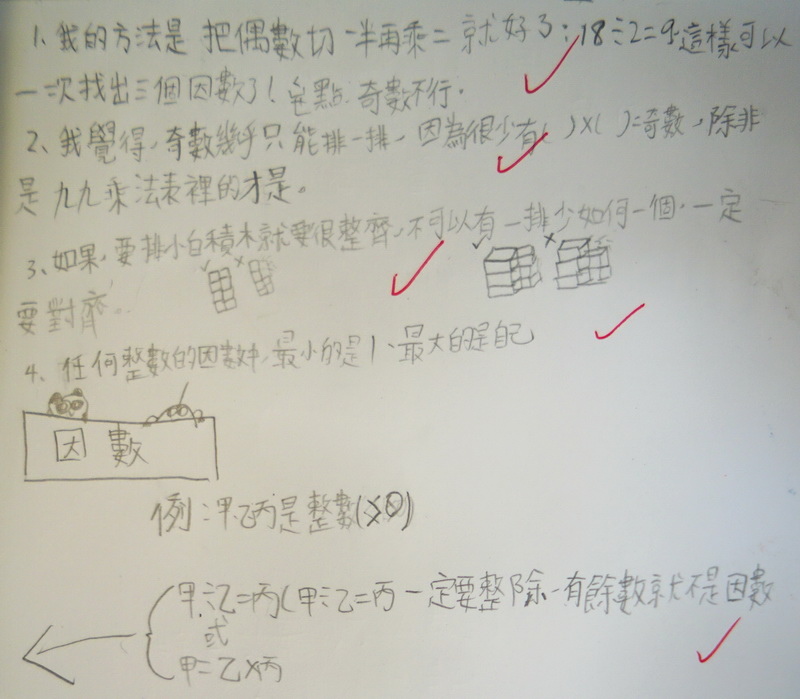 1、我的方法是 把偶數切一半再乘二就好了:18÷2=9 這樣可以
一次找出三個因數了! 缺點:奇數不行.
2、我覺得,奇數幾乎只能排一排,因為很少有( )×( )=奇數,除非
是九九乘法表裡的才是。
3、如果,要排小白積木就要很整齊,不可以有一排少如何一個,一定
要對齊。
4、任何整數的因數中,最小的是1、最大的是自己
因數
例:甲乙丙是整數(0)
甲÷乙=丙(甲÷乙=丙 一定要整除,有餘數就不是因數
或
甲=乙×丙